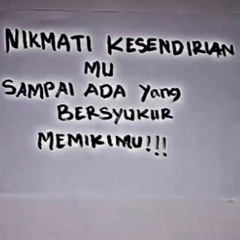 NIKMATI KESENDIRIAN
MU
SAMPAI ADA Yang
BERSYUKUR
MEMIKIMU!!!